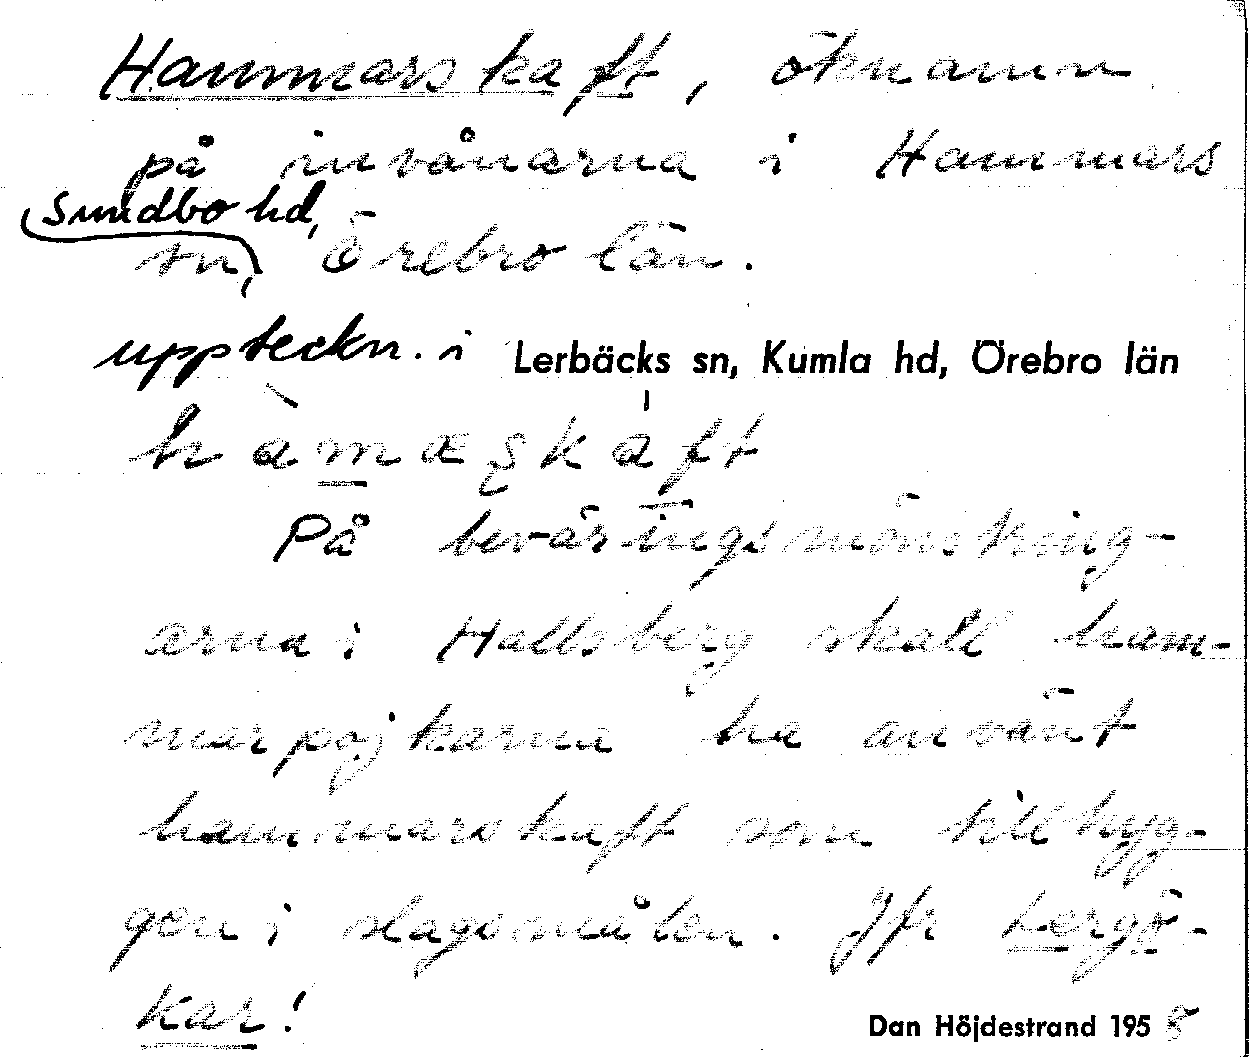 Hammarskaft, öknamn
på invånarna i Hammars
Sundbo hd,
sn, Örebro län.
uppteckn. i Lerbäcks sn, Kumla hd, Örebro län
hàmaʂkáft
På beväringsmönstring-
arna i Hallsberg skall ham-
marpojkarna ha använt
hammarskaft som tillhyg-
gen i slagsmålen. Jfr Lergö-
kar!
Dan Höjdestrand 1958